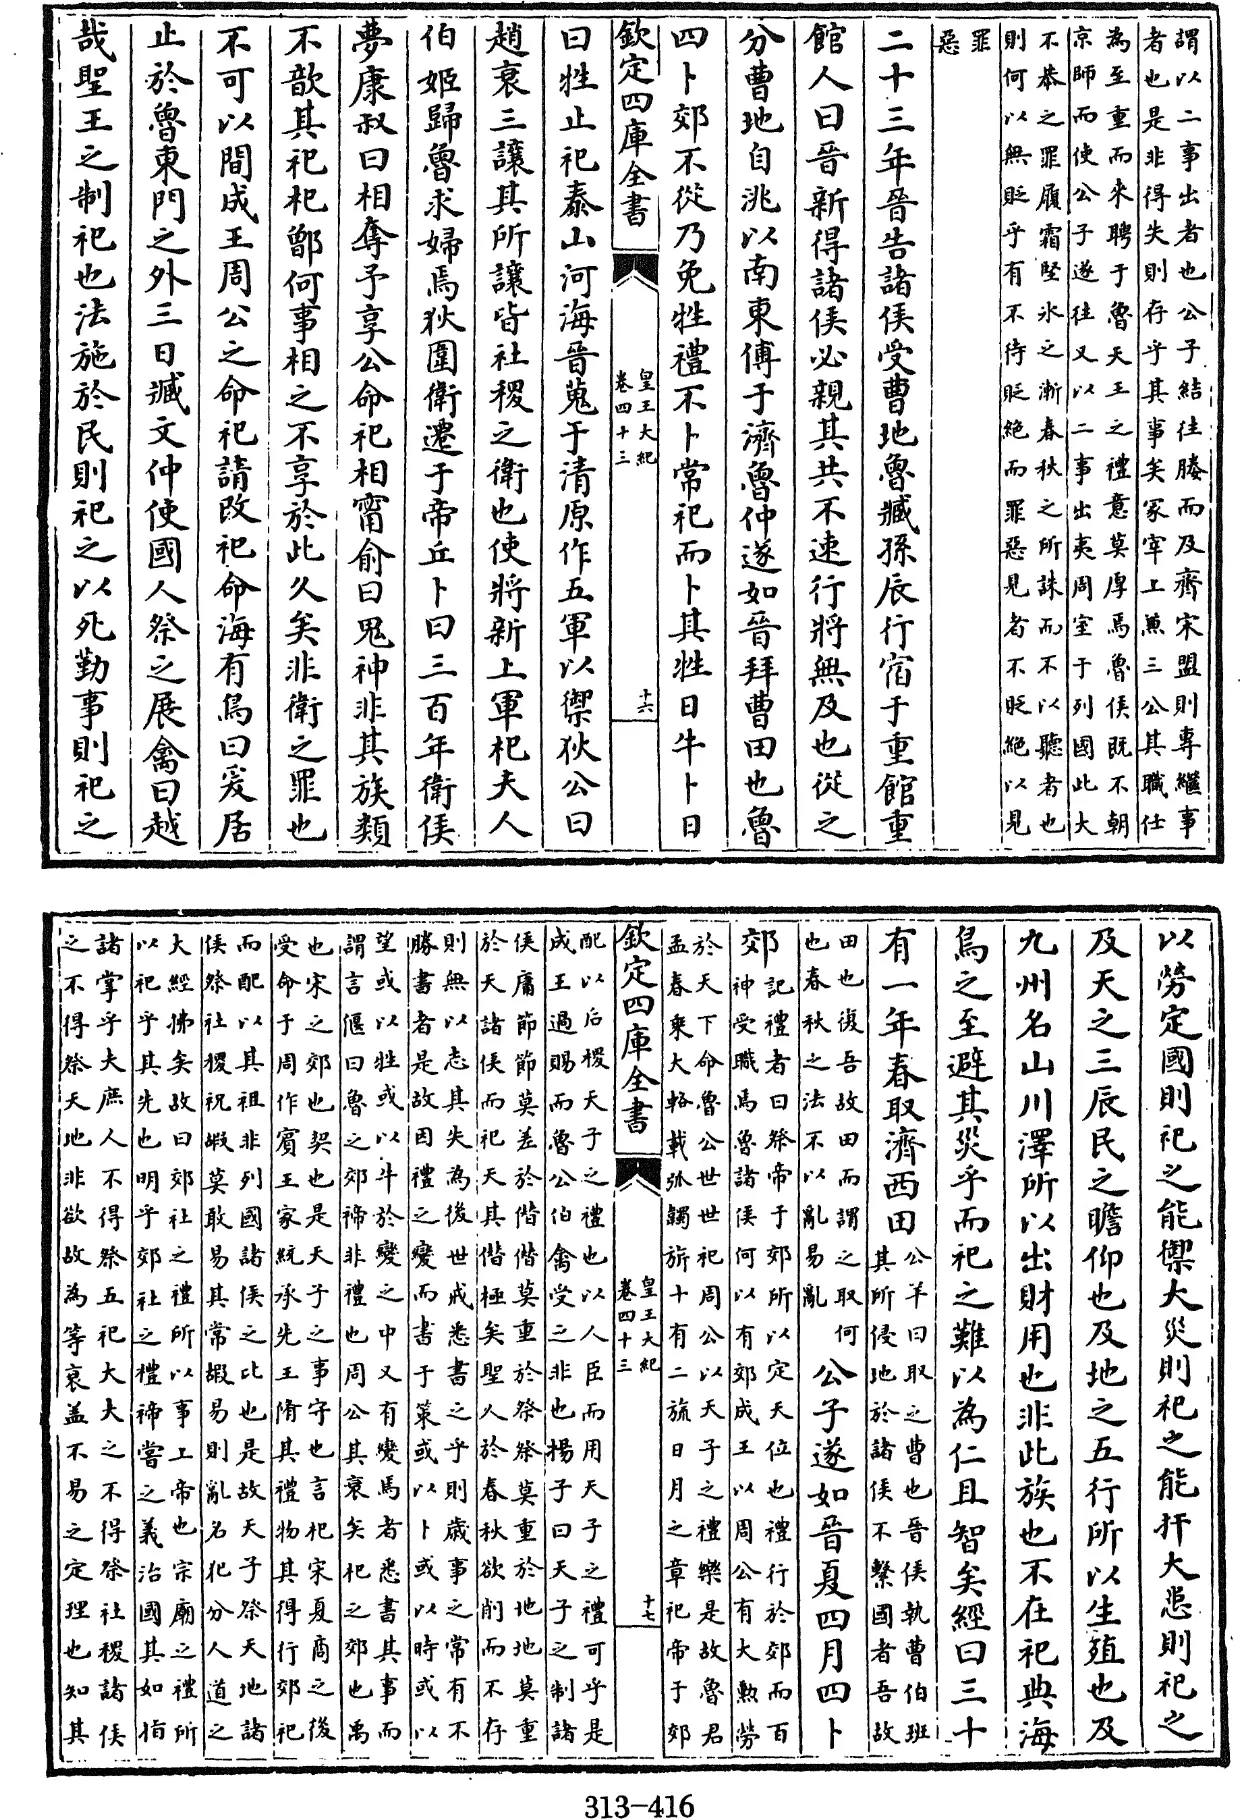 謂以二事出者也公子結往媵而及齊宋盟則專繼事
者也是非得失則存乎其事矣冢宰上兼三公其職任
為至重而來聘于魯天王之禮意莫厚焉魯侯既不朝
京師而使公子遂往又以二事出夷周室于列國此大
不恭之罪履霜堅氷之漸春秋之所誅而不以聽者也
則何以無貶乎有不待貶絶而罪惡見者不貶絶以見
罪
惡
二十三年晉告諸侯受曹地魯臧孫辰行宿于重館重
館人曰晉新得諸侯必親其共不速行將無及也從之
分曹地自洮以南東傅于濟魯仲遂如晉拜曹田也魯
四卜郊不從乃免牲禮不卜常祀而卜其牲日牛卜日
欽定四庫全書
皇王大紀
卷四十三
十六
曰牲止祀泰山河海晉蒐于清原作五軍以禦狄公曰
趙衰三讓其所讓皆社稷之衛也使將新上軍杞夫人
伯姬歸魯求婦焉狄圍衛遷于帝丘卜曰三百年衛侯
夢康叔曰相奪予享公命祀相甯俞曰鬼神非其族類
不歆其祀杞鄫何事相之不享於此久矣非衛之罪也
不可以間成王周公之命祀請改祀命海有鳥曰爰居
止於魯東門之外三日臧文仲使國人祭之展禽曰越
哉聖王之制祀也法施於民則祀之以死勤事則祀之
以勞定國則祀之能禦大災則祀之能扞大患則祀之
及天之三辰民之瞻仰也及地之五行所以生殖也及
九州名山川澤所以出財用也非此族也不在祀典海
鳥之至避其災乎而祀之難以為仁且智矣經曰三十
有一年春取濟西田公羊曰取之曹也晉侯執曹伯班
其所侵地於諸侯不繫國者吾故
田也復吾故田而謂之取何
也春秋之法不以亂易亂公子遂如晉夏四月四卜
郊記禮者曰祭帝于郊所以定天位也禮行於郊而百
神受職焉魯諸侯何以有郊成王以周公有大勲勞
於天下命魯公世世祀周公以天子之禮樂是故魯君
孟春乘大輅載弧韣旂十有二旒日月之章祀帝于郊
欽定四庫全書
皇王大紀
卷四十三
十七
配以后稷天子之禮也以人臣而用天子之禮可乎是
成王過賜而魯公伯禽受之非也楊子曰天子之制諸
侯庸節節莫差於僭僭莫重於祭祭莫重於地地莫重
於天諸侯而祀天其僭極矣聖人於春秋欲削而不存
則無以志其失為後世戒悉書之乎則歲事之常有不
勝書者是故因禮之變而書于策或以卜或以時或以
望或以牲或以牛於變之中又有變焉者悉書其事而
謂言偃曰魯之郊禘非禮也周公其衰矣杞之郊也禹
也宋之郊也契也是天子之事守也言杞宋夏商之後
受命于周作賓王家統承先王脩其禮物其得行郊祀
而配以其祖非列國諸侯之比也是故天子祭天地諸
侯祭社稷祝嘏莫敢易其常嘏易則亂名犯分人道之
大經悖矣故曰郊社之禮所以事上帝也宗廟之禮所
以祀乎其先也明乎郊社之禮禘嘗之義治國其如指
諸掌乎大庶人不得祭五祀大夫之不得祭社稷諸侯
之不得祭天地非欲故為等衰盖不易之定理也知其
313-416